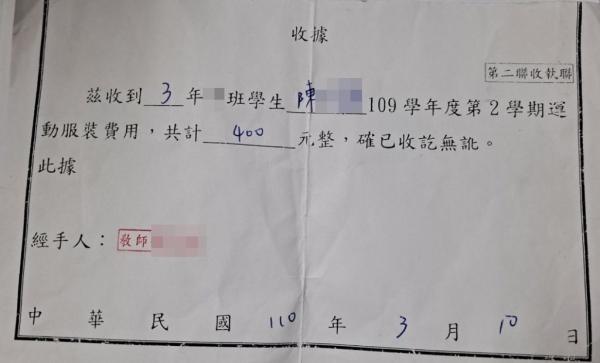 收據
第二聯收執聯
茲收到 3 年 班學生 陳 109學年度第2學期運
動服裝費用，共計 400 元整，確已收訖無訛。
此據
經手人：教師
中華民國 110 年 3 月 10 日